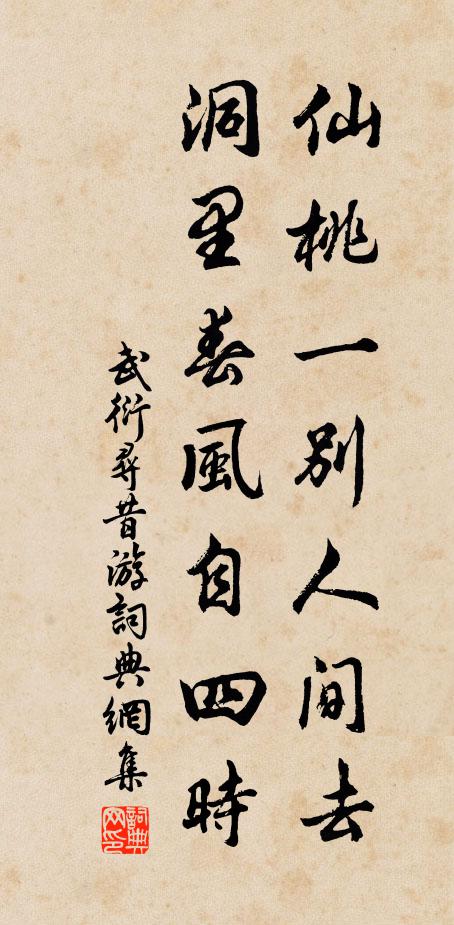 仙桃一别人间去
洞里春風自四時
武衍尋昔游詞典網集
詞典网印